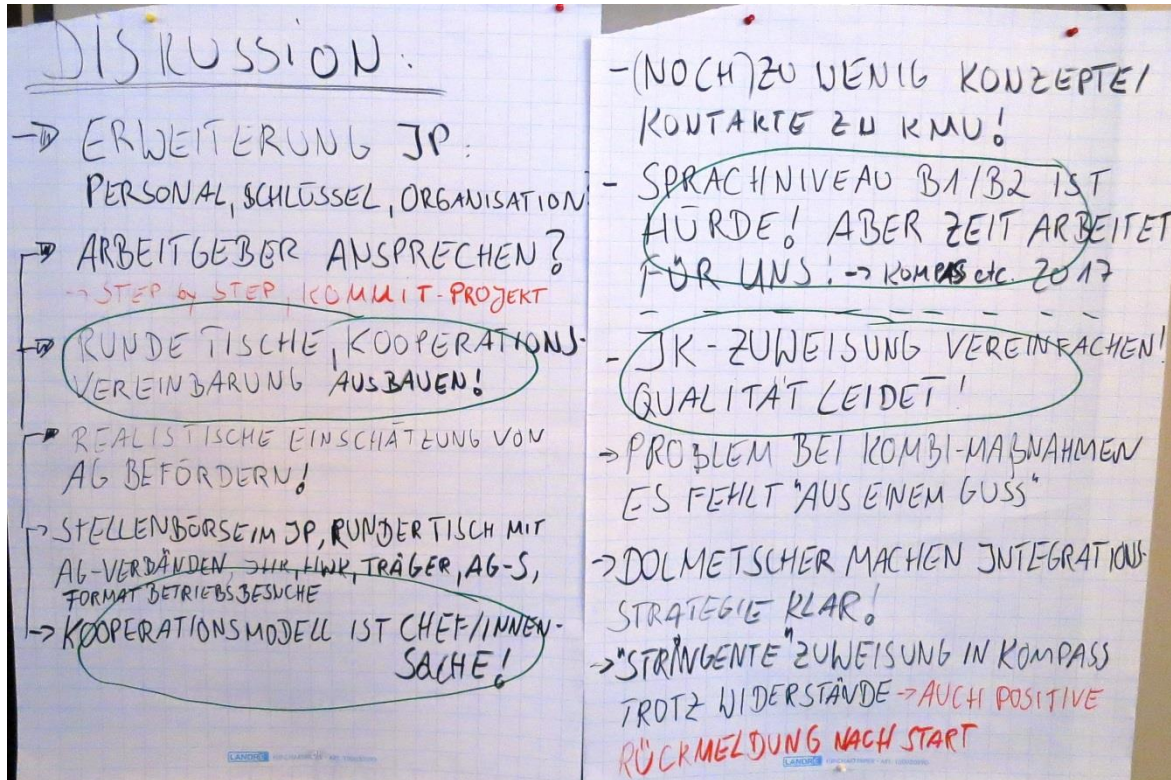 DISKUSSION:
-> ERWEITERUNG JP:
PERSONAL, SCHLÜSSEL, ORGANISATION
-> ARBEITGEBER ANSPRECHEN?
-> STEP by STEP, KOMMIT-PROJEKT
-> RUNDE TISCHE, KOOPERATIONS-
VEREINBARUNG AUSBAUEN!
-> REALISTISCHE EINSCHÄTZUNG VON
AG BEFÖRDERN!
-> STELLENBÖRSE IM JP, RUNDER TISCH MIT
AG-VERBÄNDEN, IHK, HWK, TRÄGER, AG-S,
FORMAT BETRIEBSBESUCHE
-> KOOPERATIONSMODELL IST CHEF/INNEN-
SACHE!
LANDRÉ
- (NOCH) ZU WENIG KONZEPTE/
KONTAKTE ZU KMU!
- SPRACHNIVEAU B1/B2 IST
HÜRDE! ABER ZEIT ARBEITET
FÜR UNS! -> KOMPAS etc. 2017
- JK-ZUWEISUNG VEREINFACHEN!
QUALITÄT LEIDET!
-> PROBLEM BEI KOMBI-MAßNAHMEN
ES FEHLT "AUS EINEM GUSS"
-> DOLMETSCHER MACHEN INTEGRATIONS-
STRATEGIE KLAR!
-> "STRINGENTE" ZUWEISUNG IN KOMPASS
TROTZ WIDERSTÄNDE -> AUCH POSITIVE
RÜCKMELDUNG NACH START
LANDRÉ